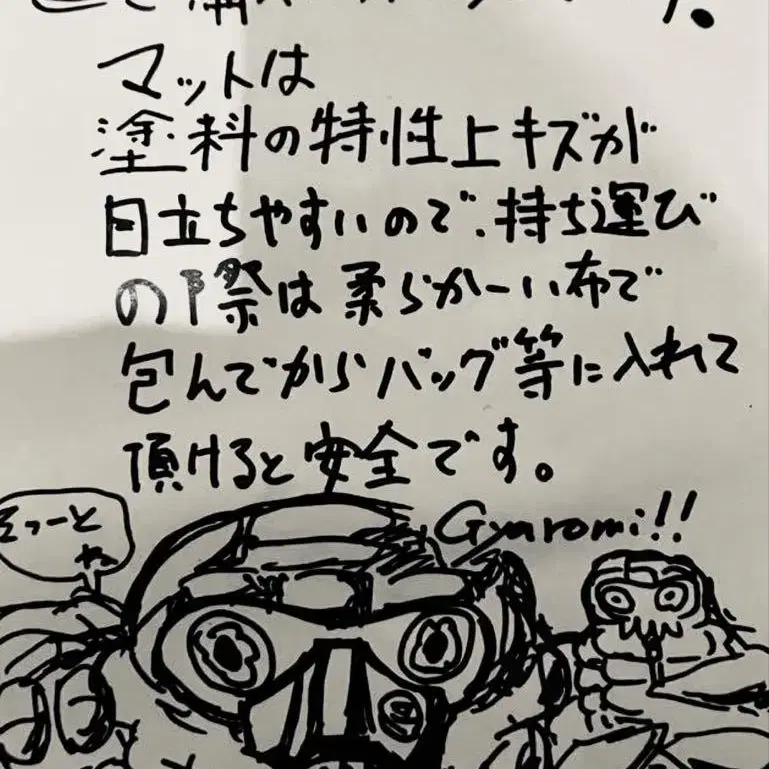 マットは
塗料の特性上キズが
目立ちやすいので、持ち運び
の際は柔らかーい布で
包んでからバッグ等に入れて
頂けると安全です。
Gyaromi!!
そっーと
ね